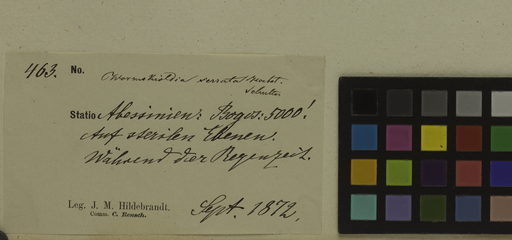 463. No. Wormskioldia serrata Hochst.
Statio Abessinien: Bogos: 5000'.
Auf sterilen Ebenen.
Während der Regenzeit.
Leg. J. M. Hildebrandt.
Comm. C. Rensch.
Sept. 1872.